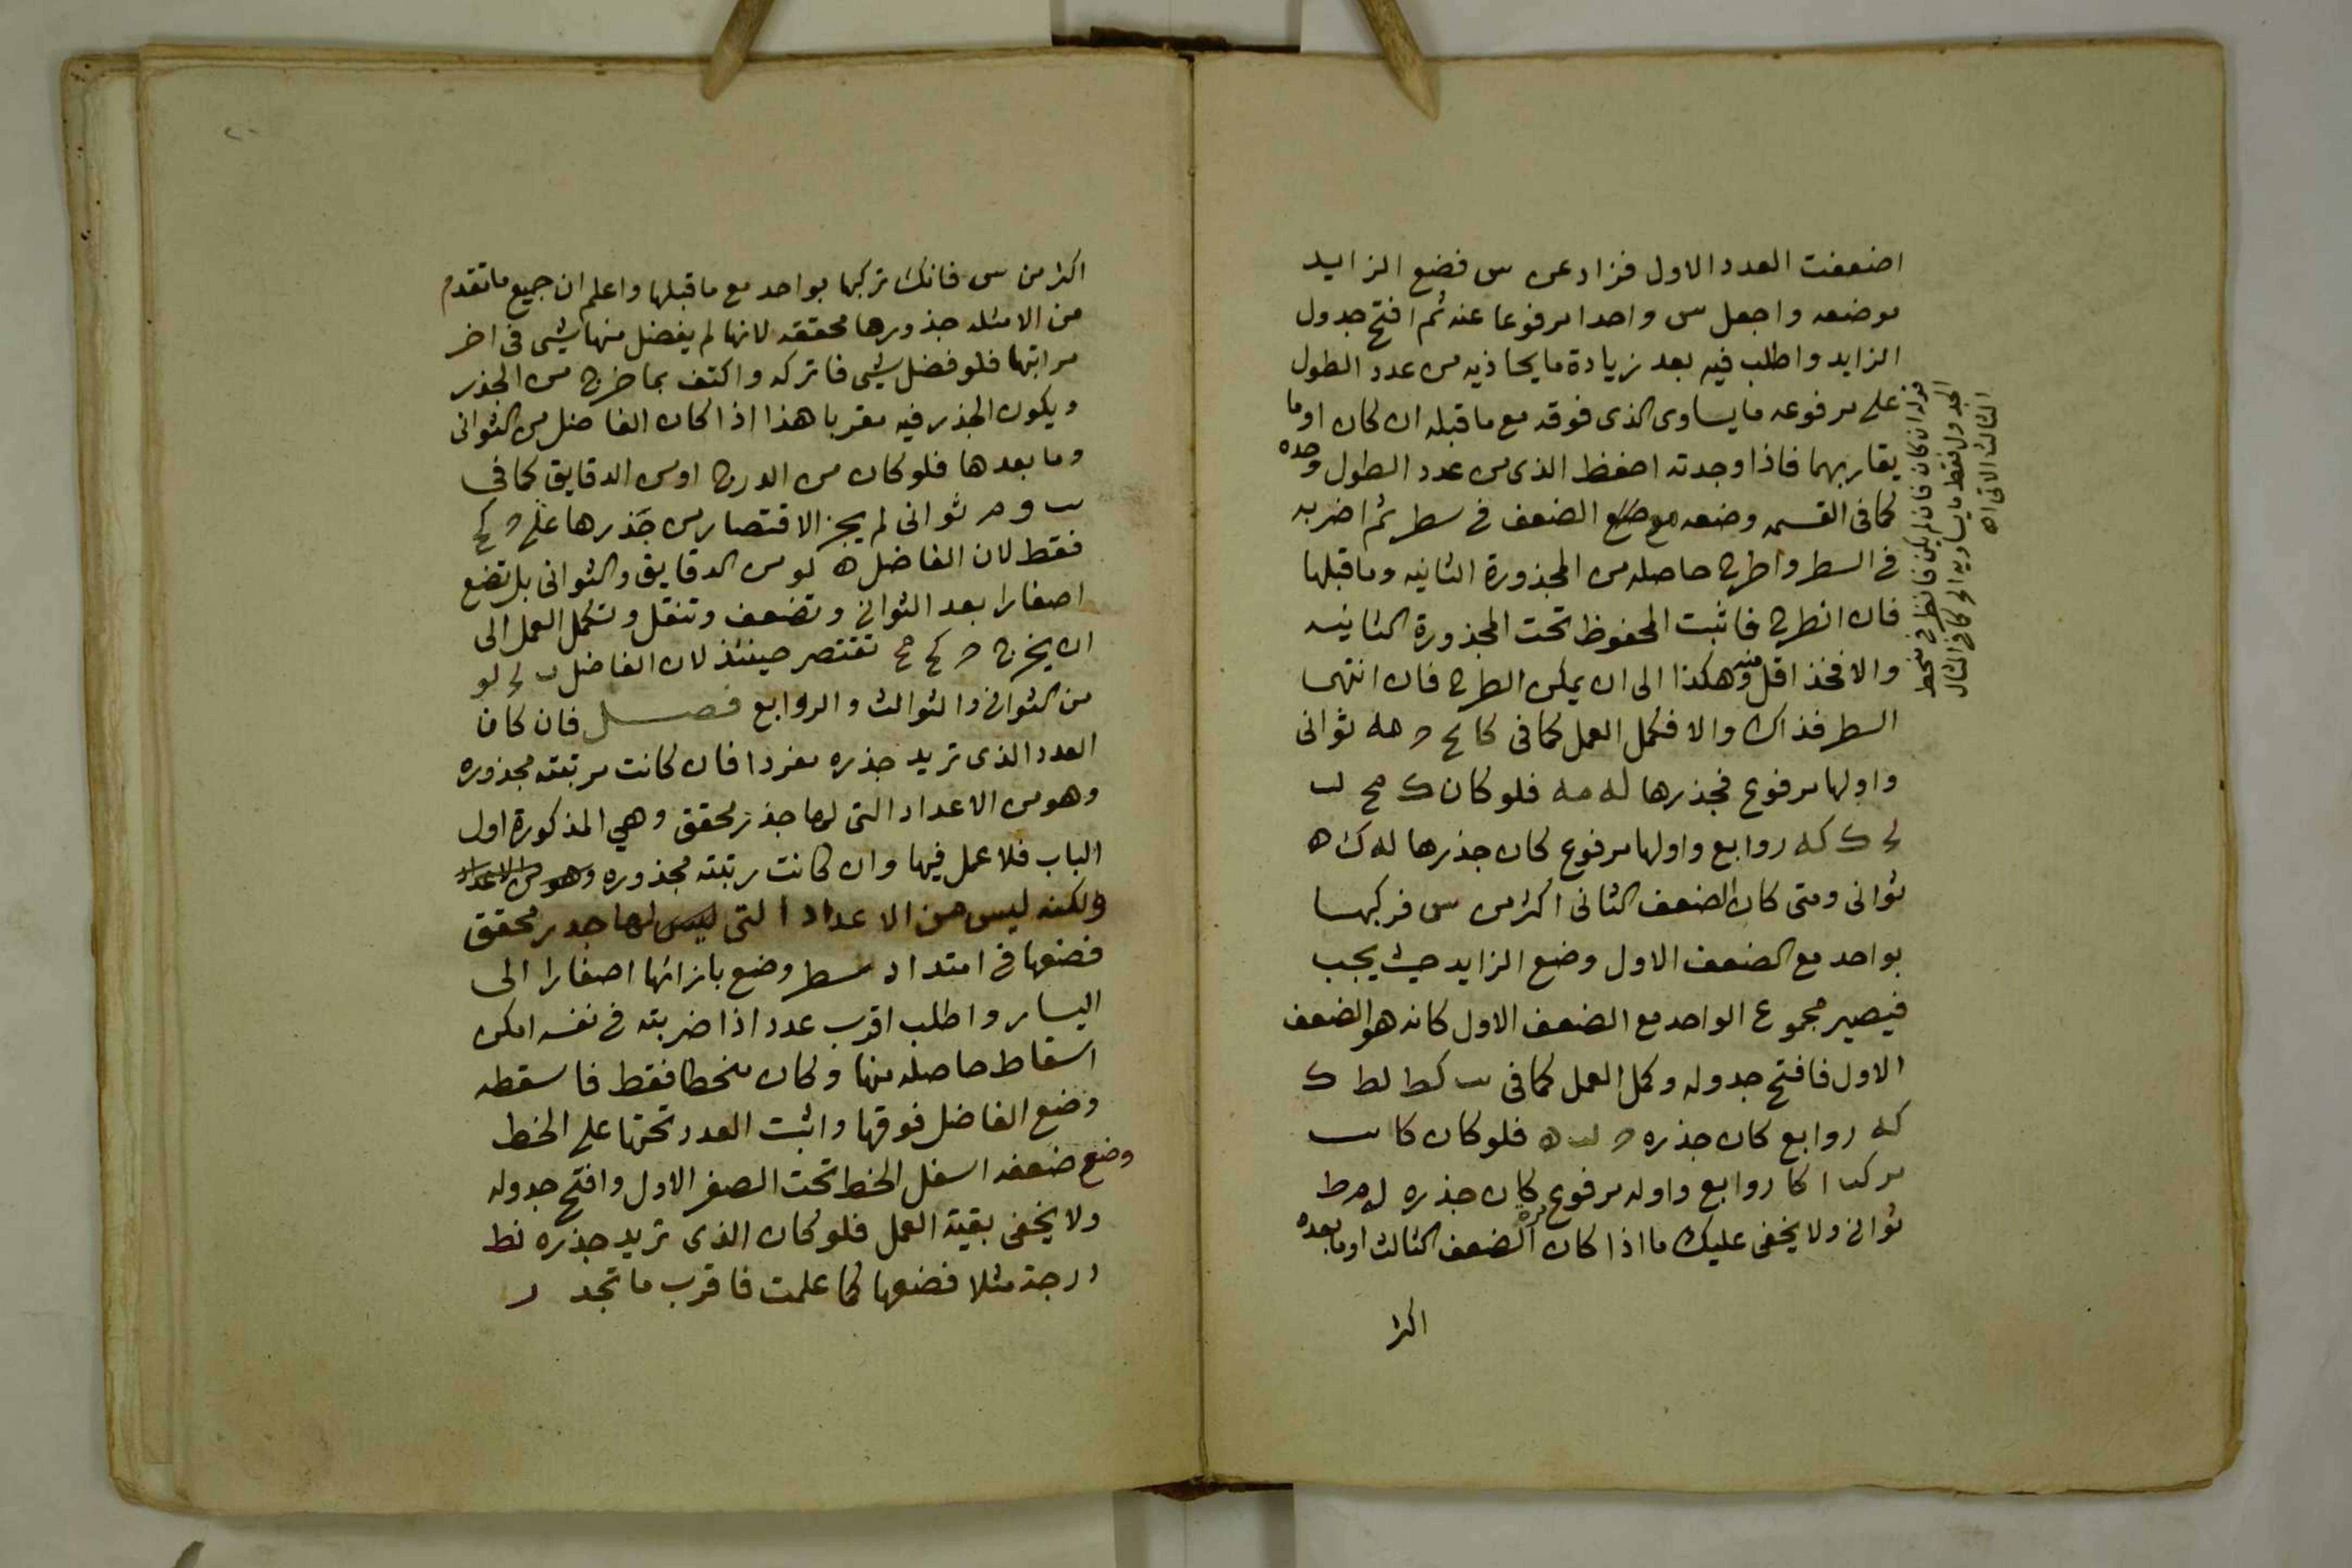 اضعفت العدد الاول فزاد عن س فضع الزايد
موضعه واجعل س واحدا مرفوعا عنه ثم افتح جدول
الزايد واطلب فيه بعد زيادة ما يحاذيه من عدد الطول
على مرفوعه ما يساوى الذى فوقه مع ما قبله ان كان او ما
يقاربهما فاذا وجدته احفظ الذى من عدد الطول وحده
كما فى القسمه وضعه مع ضلع الضعف فى سطر ثم اضربه
فى السطر واطرح حاصله من المجذورة الثانيه وما قبلها
فان انطرح فاثبت المحفوظ تحت المجذورة الثانيه
والا فخذ اقل منه وهكذا الى ان يمكن الطرح فان انتهى
السطر فذاك والا فكمل العمل كما فى كا مح ثوانى
واولها مرفوع فجذرها له مه فلو كان ك مح لب
ك كه روابع واولها مرفوع لكان جذرها له ك ه
ثوانى ومتى كان الضعف الثانى اكثر من س فركبها
بواحد مع الضعف الاول وضع الزايد حيث يجب
فيصير مجموع الواحد مع الضعف الاول كانه هو الضعف
الاول فافتح جدوله وكمل العمل كما فى ب كط لط ك
كه روابع كان جذره لب ه فلو كان كا ب
م كب ا كا روابع واوله مرفوع كان جذره له مط
ثوانى ولا يخفى عليك ما اذا كان الضعف الثالث او ما بعده
اكثر
قوله ان كان فان لم يكن فانظر فى نخط
الجدول فقط ما يساويه الخ كما فى المثال
الثالث الاتى اه
اكثر من س فانك تركبها بواحد مع ما قبلها واعلم ان جميع ما تقدم
من الامثله جذورها محققه لانها لم يفضل منها شيى فى اخر
مراتبها فلو فضل شيى فاتركه واكتف بما خرج من الجذر
ويكون الجذر فيه مقربا هذا اذا كان الفاضل من الثوانى
وما بعدها فلو كان من الدرج او من الدقايق كما فى
ب و م ثوانى لم يجز الاقتصار من جذرها على ح كح
فقط لان الفاضل ه لو من الدقايق والثوانى بل تضع
اصفارا بعد الثوانى وتضعف وتنقل وتكمل العمل الى
ان يخرج ح كح مح تقتصر حينئذ لان الفاضل لو
من الثوانى والثوالث والروابع فصل فان كان
العدد الذى تريد جذره مفردا فان كانت مرتبته مجذوره
وهو من الاعداد التى لها جذر محقق وهي المذكورة اول
الباب فلا عمل فيها وان كانت رتبته مجذوره وهو من الاعداد
ولكنه ليس من الاعداد التى ليس لها جدر محقق
فضعها فى امتداد سطر وضع بازائها اصفارا الى
اليسار واطلب اقرب عدد اذا ضربته فى نفسه امكن
اسقاط حاصله منها وكان منحطا فقط فاسقطه
وضع الفاضل فوقها واثبت العدد تحتها على الخط
وضع ضعفه اسفل الخط تحت الصفر الاول وافتح جدوله
ولا يخفى بقية العمل فلو كان الذى تريد جذره نط
درجة مثلا فضعها كما علمت فاقرب ما تجد